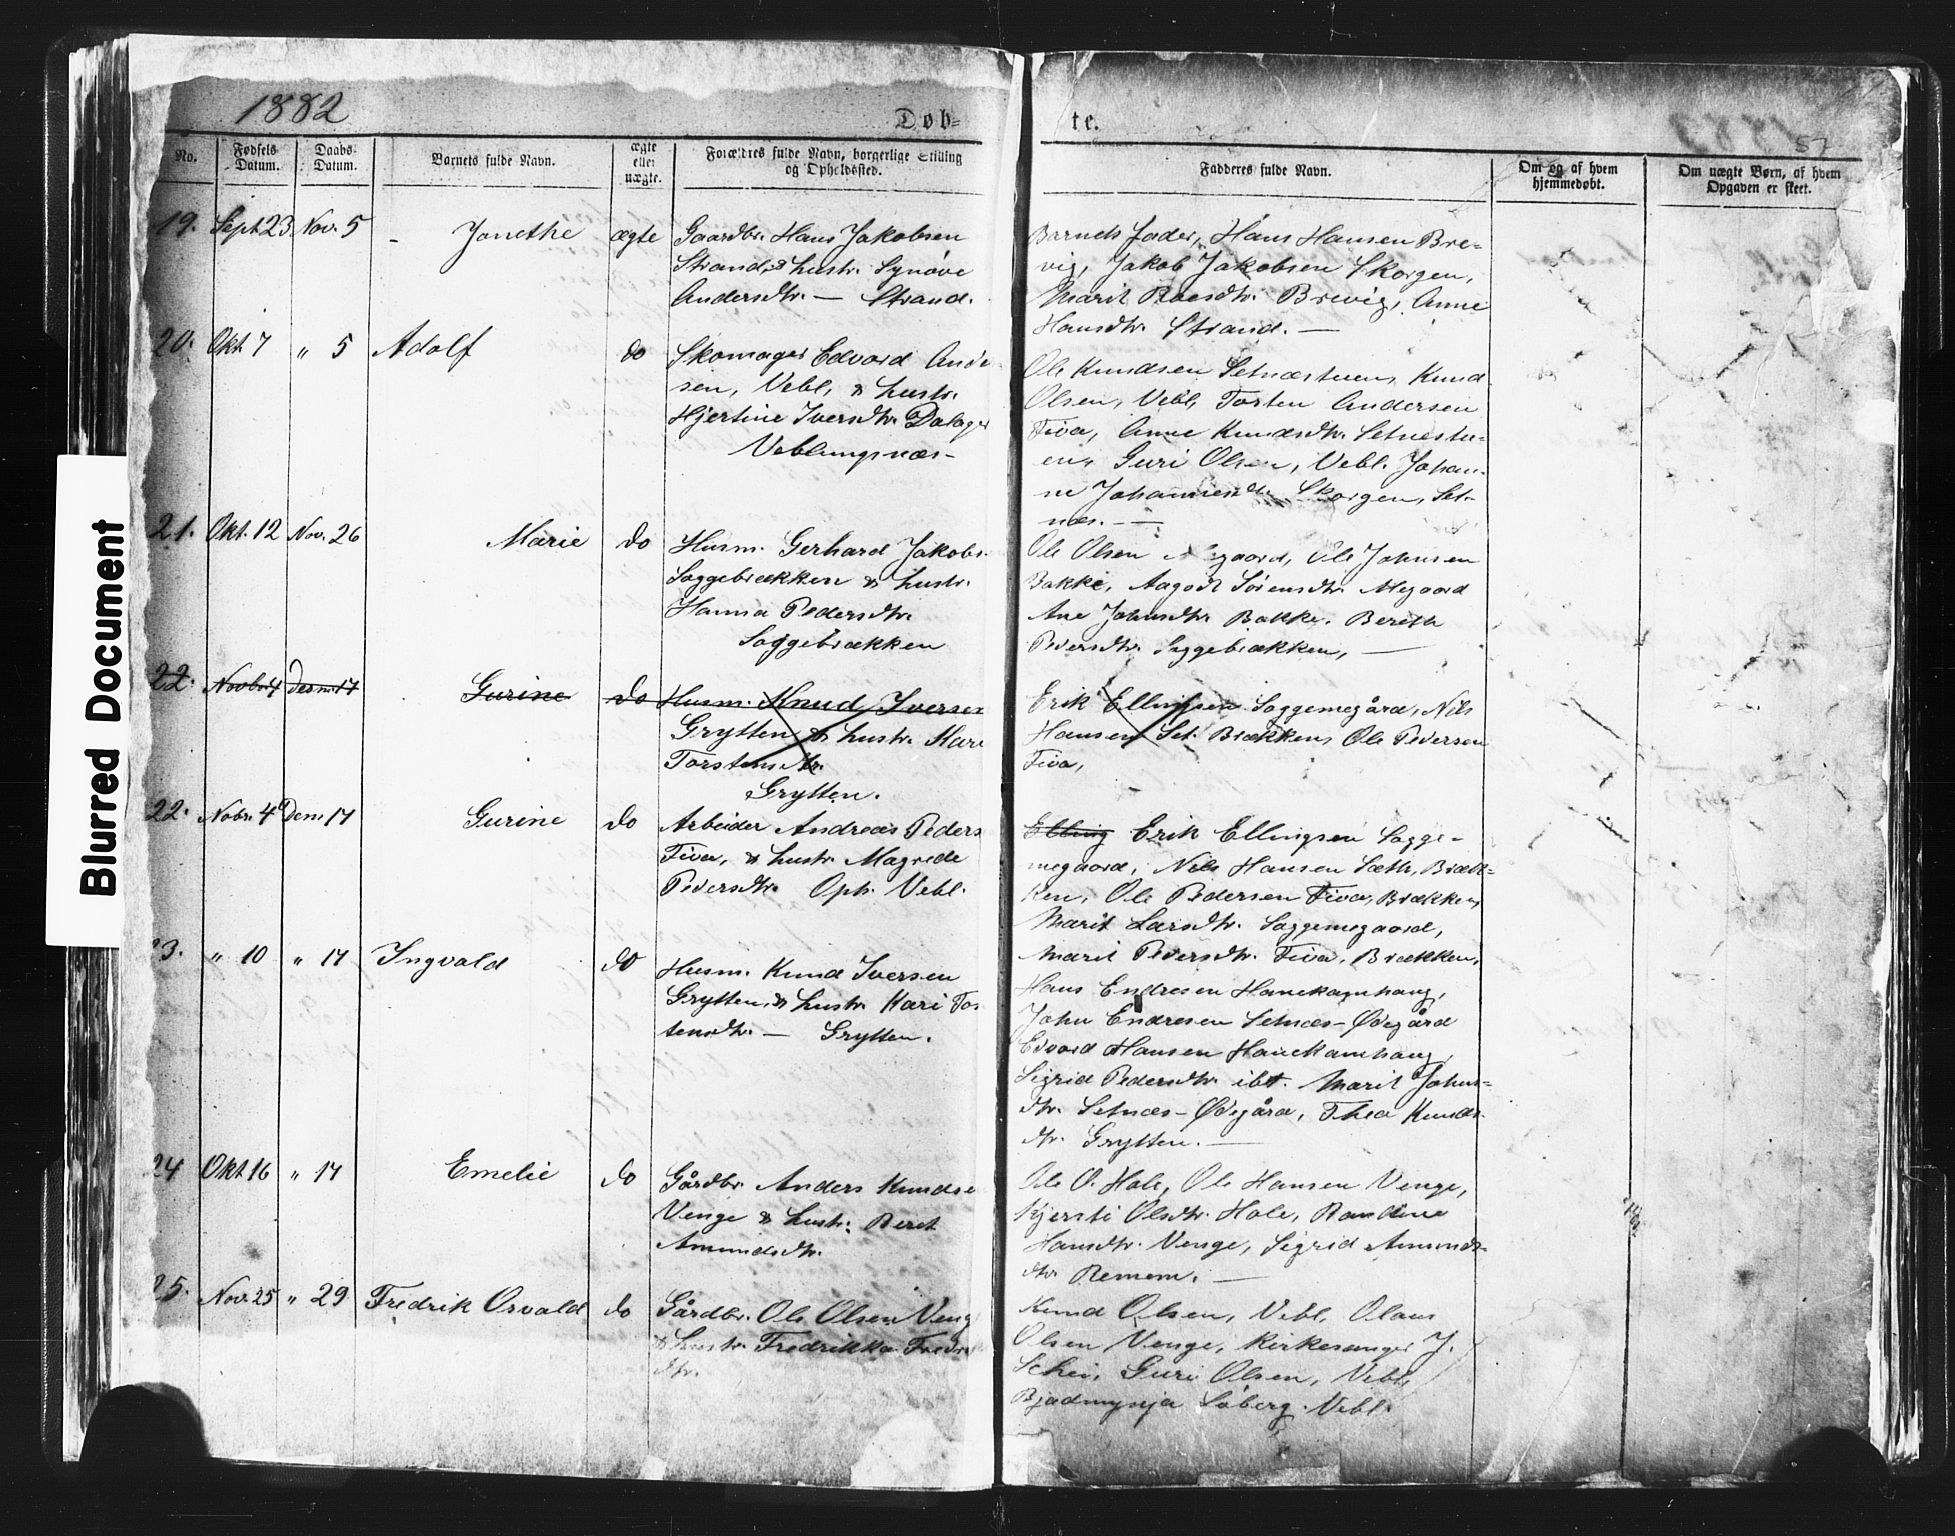 1882
Døb=
te.
57
Blurred Document
No.
Fødsels Datum.
Daabs Datum.
Barnets fulde Navn.
ægte eller uægte.
Forældres fulde Navn, borgerlige Stilling og Opholdssted.
Fadderes fulde Navn.
Om og af hvem hjemmedøbt.
Om uægte Børn, af hvem Opgaven er skeet.
19. Sept 23 Nov. 5 - Janethe ægte Gaardbr. Hans Jakobsen
Strand, & hustr. Synøve
Andersdtr. — Strand.
Barnets fader, Hans Hansen Bre=
vig, Jakob Jakobsen Skorgen,
Marit Roesdtr. Brevig, Anne
Hansdtr. Strand. —
20. Okt. 7 " 5 Adolf do Skomager Edvard Ander
sen, Vebl, & hustr.
Hjertine Iversdtr. Dalager
Veblungsnæs -
Ole Knudsen Setnæstuen, Knud
Olsen, Vebl, Torsten Andersen
Fiva, Anne Knudsdtr. Setnestu=
en, Guri Olsen, Vebl. Johan-
ne Johannesdtr. Skorgen, Set-
næs. - —
21. Okt. 12 Nov. 26 Marie do Husm. Gerhard Jakobs.
Soggebrækken & hustr.
Hanna Pedersdtr.
Soggebrækken
Ole Olsen gaard, Ole Johnsen
Bakke, Aagodt Sørensdtr. Megaard
Ane Johnsdtr. Bakke. Bereth
Pedersdtr. Soggebrækken, —
22. Novbr. 4 Decm. 17 Gurine do Husm. Knud Iversen
Grytten & hustr. Kari
Torstensdtr.
Grytten.
Erik Ellingsen Soggemegård, Nils
Hansen Set. Brækken, Ole Pedersen
Fiva,
22. Nobr. 4 Decm 17 Gurine do Arbeider Andreas Peders
Fiva, & hustr. Magrede
Pedersdtr. Oph. Vebl.
Elling Erik Ellingsen Sogge-
megaard, Nils Hansen Sæth, Bræk=
ken, Ole Pedersen Fiva, Brækken,
Marit Larsdtr. Soggemegaard,
Marit Pedersdtr. Fiva, Brækken,
23. " 10 " 17 Ingvald do Husm. Knud Iversen
Grytten, & hustr. Kari Tos
tensdtr. — Grytten.
Hans Endresen Hanekamhaug,
John Endresen Setnæs-Ødegård
Edvard Hansen Hanekamhaug,
Sigrid Pedersdtr. ibd. Marit Johns=
dtr. Setnæs-Ødegård, Thea Knuds
dtr. Grytten. —
24 Okt 16 " 17 Emelie do Gårdbr. Anders Knudse
Venge & hustr: Beret
Amundsdtr.
Ole O. Hole, Ole Hansen Venge,
Kjersti Olsdtr. Hole, Randine
Hansdtr. Venge, Sigrid Amunds=
dtr. Remem. —
25. Nov. 25 " 29 Fredrik Osvald do Gårdbr. Ole Olsen Veng
& hustr. Fredrikka Fredr
dtr.
Knud Olsen, Vebl, Olaus
Olsen Venge, Kirkesanger J.
Schei, Guri Olsen, Vebl,
Bjadmynja Søberg. Vebl.